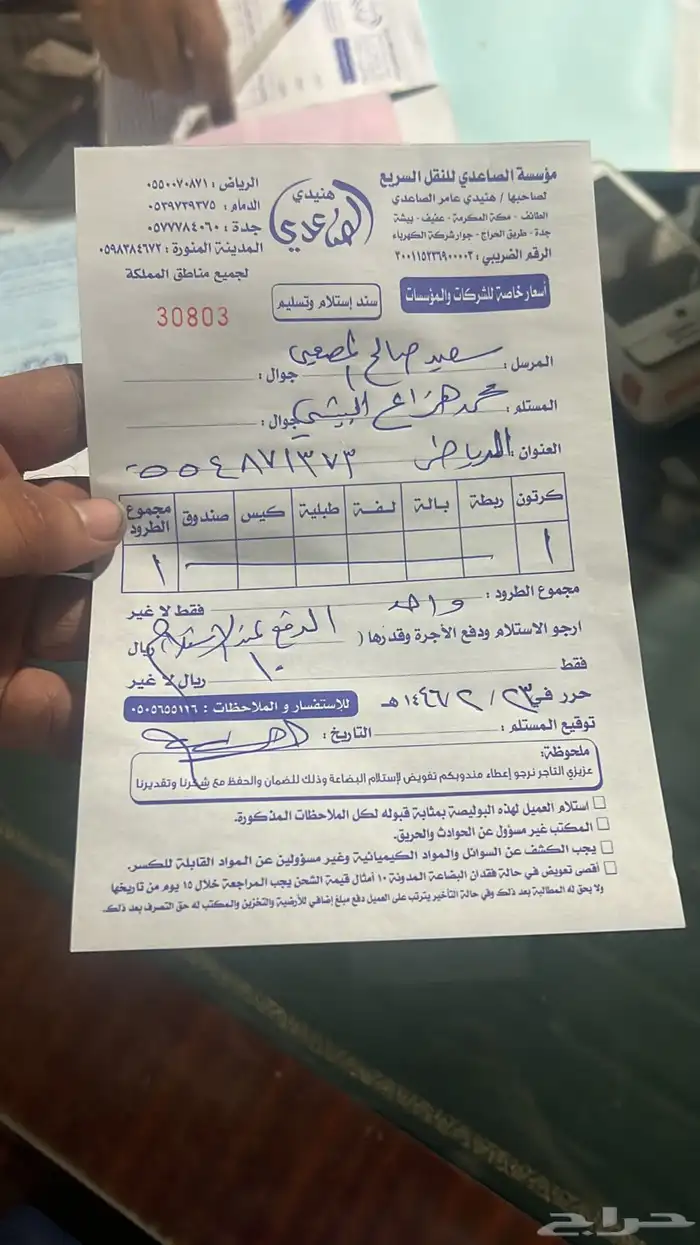 مؤسسة الصاعدي للنقل السريع
لصاحبها / هنيدي عامر الصاعدي
الطائف - مكة المكرمة - عفيف - بيشة
جدة - طريق الحراج - جوار شركة الكهرباء
الرقم الضريبي : ٣٠٠١١٥٢٣٩٠٠٠٠٣
أسعار خاصة للشركات والمؤسسات
هنيدي
الصاعدي
سند إستلام وتسليم
الرياض : ٠٥٥٠٠٧٠٨٧١
الدمام : ٠٥٣٩٧٣٩٣٧٥
جدة : ٠٥٧٧٧٨٤٠٦٠
المدينة المنورة : ٠٥٩٨٣٨٤٦٧٢
لجميع مناطق المملكة
30803
المرسل : سعيد صالح جوال :
المستلم : محمد هزاع البيشي جوال :
العنوان : الرياض ٠٥٥٤٨٧١٣٧٣
كرتون ربطة بالة لفة طبلية كيس صندوق مجموع الطرود
١ ١
مجموع الطرود : واحد فقط لا غير
ارجو الاستلام ودفع الأجرة وقدرها ( الدفع عند الاستلام ) ريال
فقط ١٠ ريال لا غير
حرر في ٢٣ / ٢ / ١٤٤٦ هـ
للاستفسار و الملاحظات : ٠٥٠٥٦٥٥١١٦
توقيع المستلم : التاريخ :
ملحوظة:
عزيزي التاجر نرجو إعطاء مندوبكم تفويض لإستلام البضاعة وذلك للضمان والحفظ مع شكرنا وتقديرنا
استلام العميل لهذه البوليصة بمثابة قبوله لكل الملاحظات المذكورة.
المكتب غير مسؤول عن الحوادث والحريق.
يجب الكشف عن السوائل والمواد الكيميائية وغير مسؤولين عن المواد القابلة للكسر.
أقصى تعويض في حالة فقدان البضاعة المدونة ١٠ أمثال قيمة الشحن يجب المراجعة خلال ١٥ يوم من تاريخها
ولا يحق له المطالبة بعد ذلك وفي حالة التأخير يترتب على العميل دفع مبلغ إضافي للأرضية والتخزين والمكتب له حق التصرف بعد ذلك.
حراج